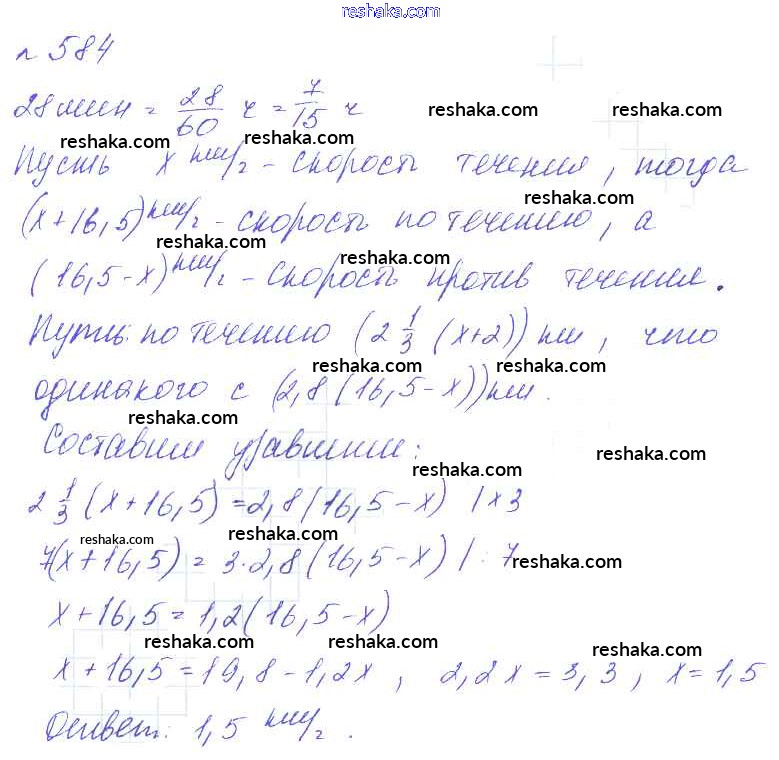 www.reshaka.com
№ 584
reshaka.com
28 мин = 28/60 ч = 7/15 ч
reshaka.com reshaka.com
Пусть x км/ч - скорость течения, тогда
reshaka.com
(x+16,5) км/ч - скорость по течению, а
reshaka.com reshaka.com
(16,5-x) км/ч - скорость против течения.
Путь по течению (2 1/3 (x+2)) км, что
reshaka.com reshaka.com
одинакого с (2,8(16,5-x)) км.
reshaka.com
Составим уравнение:
reshaka.com reshaka.com
2 1/3 (x+16,5) = 2,8(16,5-x) | x3
reshaka.com reshaka.com
7(x+16,5) = 3·2,8(16,5-x) | : 7
reshaka.com
x+16,5 = 1,2(16,5-x)
reshaka.com reshaka.com reshaka.com
x+16,5 = 19,8-1,2x, 2,2x = 3,3, x = 1,5
Ответ: 1,5 км/ч.